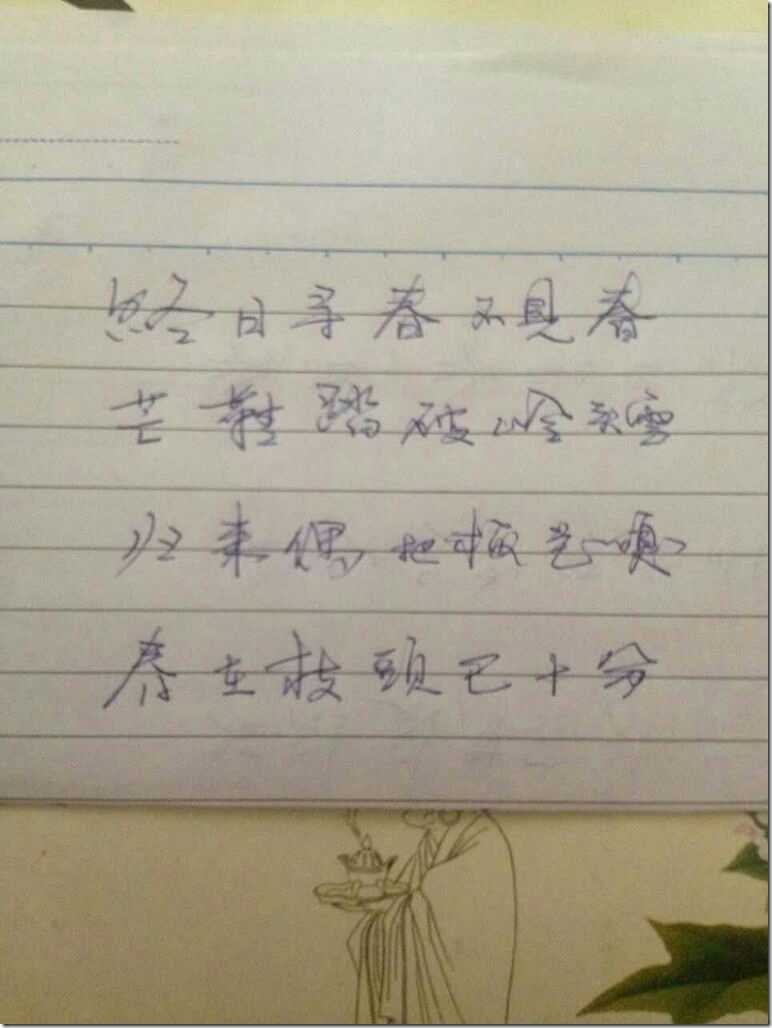 終日寻春不見春
芒鞋踏破岭头雲
归来偶把梅花嗅
春在枝頭已十分